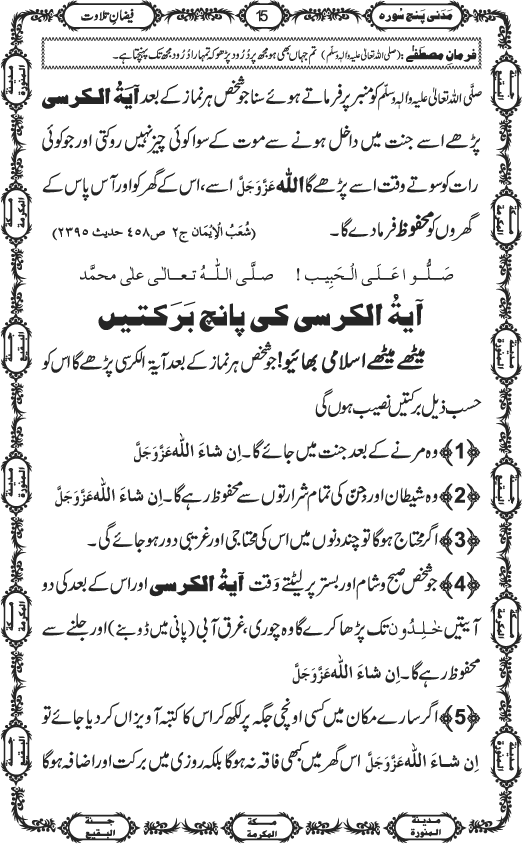 مَدَنی پنج سُورہ
15
فیضانِ تلاوت
فرمانِ مصطفٰے : (صلی اللہ تعالیٰ علیہ والہ وسلم) تم جہاں بھی ہو مجھ پر دُرُود پڑھو کہ تمہارا دُرُود مجھ تک پہنچتا ہے۔
صلَّی اللہ تعالیٰ علیہ والہ وسلَّم کو منبر پر فرماتے ہوئے سنا جو شخص ہر نماز کے بعد آیۃُ الکرسی
پڑھے اسے جنت میں داخل ہونے سے موت کے سوا کوئی چیز نہیں روکتی اور جو کوئی
رات کو سوتے وقت اسے پڑھے گا اللہ عَزَّوَجَلَّ اسے، اس کے گھر کو اور آس پاس کے
گھروں کو محفوظ فرما دے گا۔ (شُعَبُ الْاِیْمَان ج۲ ص۴۵۸ حدیث ۲۳۹۵)
صَلُّوا عَلَی الْحَبِیب ! صلَّی اللّٰہُ تعالٰی علٰی محمَّد
آیۃُ الکرسی کی پانچ بَرَکتیں
میٹھے میٹھے اسلامی بھائیو! جو شخص ہر نماز کے بعد آیۃ الکرسی پڑھے گا اس کو
حسب ذیل برکتیں نصیب ہوں گی
﴿1﴾ وہ مرنے کے بعد جنت میں جائے گا۔ اِن شاءَ اللہ عَزَّوَجَلَّ
﴿2﴾ وہ شیطان اور جِنّ کی تمام شرارتوں سے محفوظ رہے گا۔ اِن شاءَ اللہ عَزَّوَجَلَّ
﴿3﴾ اگر محتاج ہوگا تو چند دنوں میں اس کی محتاجی اور غریبی دور ہو جائے گی۔
﴿4﴾ جو شخص صبح و شام اور بستر پر لیٹتے وَقت آیۃُ الکرسی اور اس کے بعد کی دو
آیتیں خٰلِدُون تک پڑھا کرے گا وہ چوری، غرق آبی (پانی میں ڈوبنے) اور جلنے سے
محفوظ رہے گا۔ اِن شاءَ اللہ عَزَّوَجَلَّ
﴿5﴾ اگر سارے مکان میں کسی اونچی جگہ پر لکھ کر اس کا کتبہ آویزاں کر دیا جائے تو
اِن شاءَ اللہ عَزَّوَجَلَّ اس گھر میں کبھی فاقہ نہ ہوگا بلکہ روزی میں برکت اور اضافہ ہوگا
مدینة المنورة
مکة المکرمة
جنة البقیع
مدینة المنورة
مکة المکرمة
جنة البقیع
جنة البقیع
مکة المکرمة
مدینة المنورة
جنة البقیع
مکة المکرمة
مدینة المنورة
مدینة المنورة
مکة المکرمة
جنة البقیع